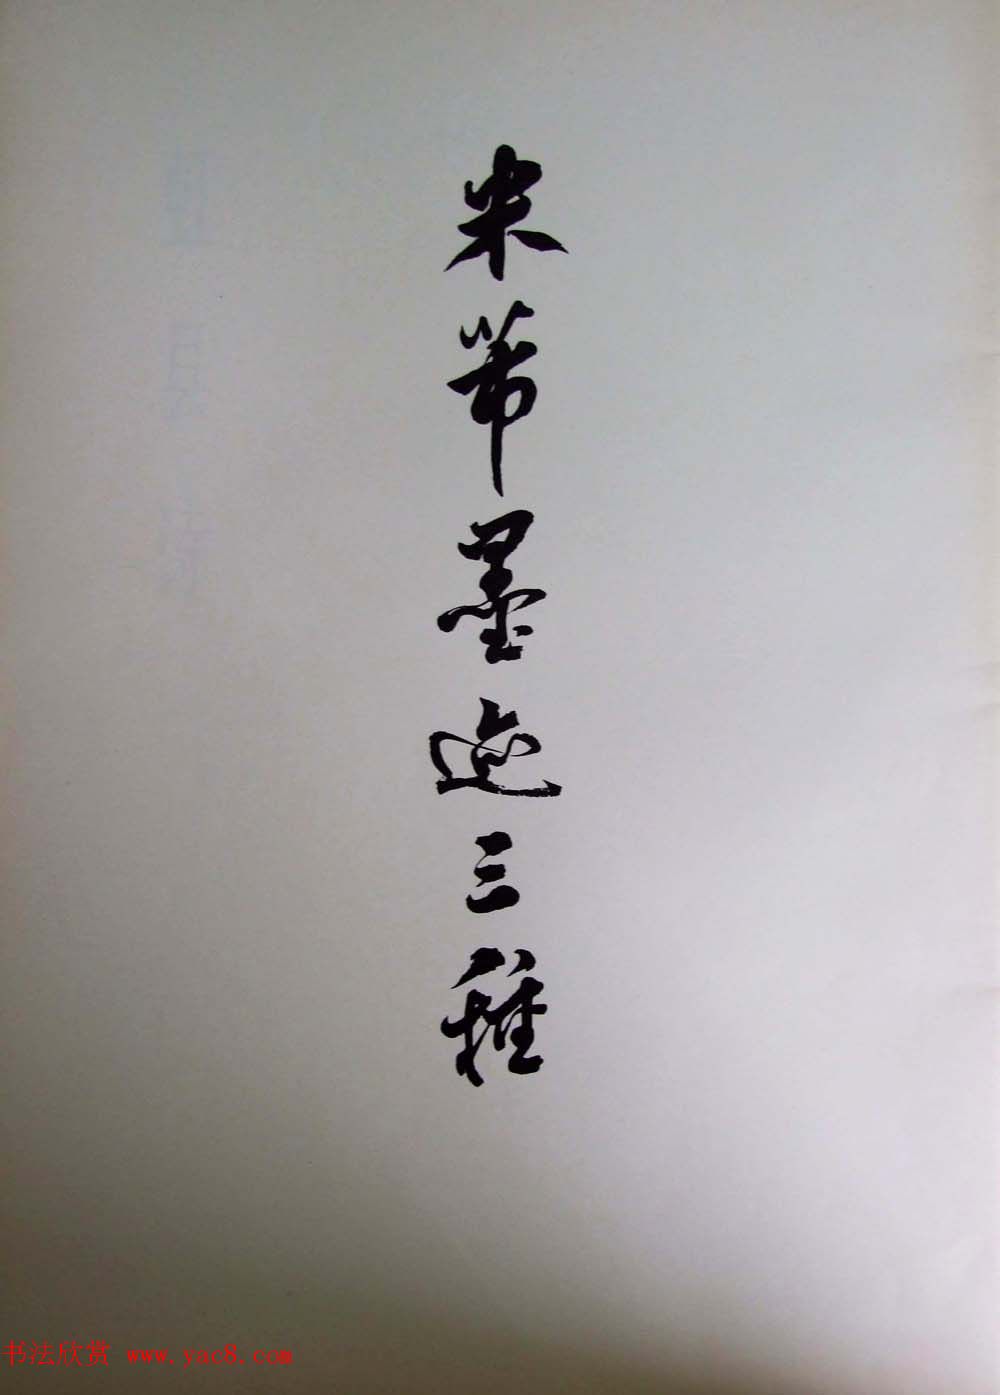 米芾墨迹三種
书法欣赏 www.yac8.com